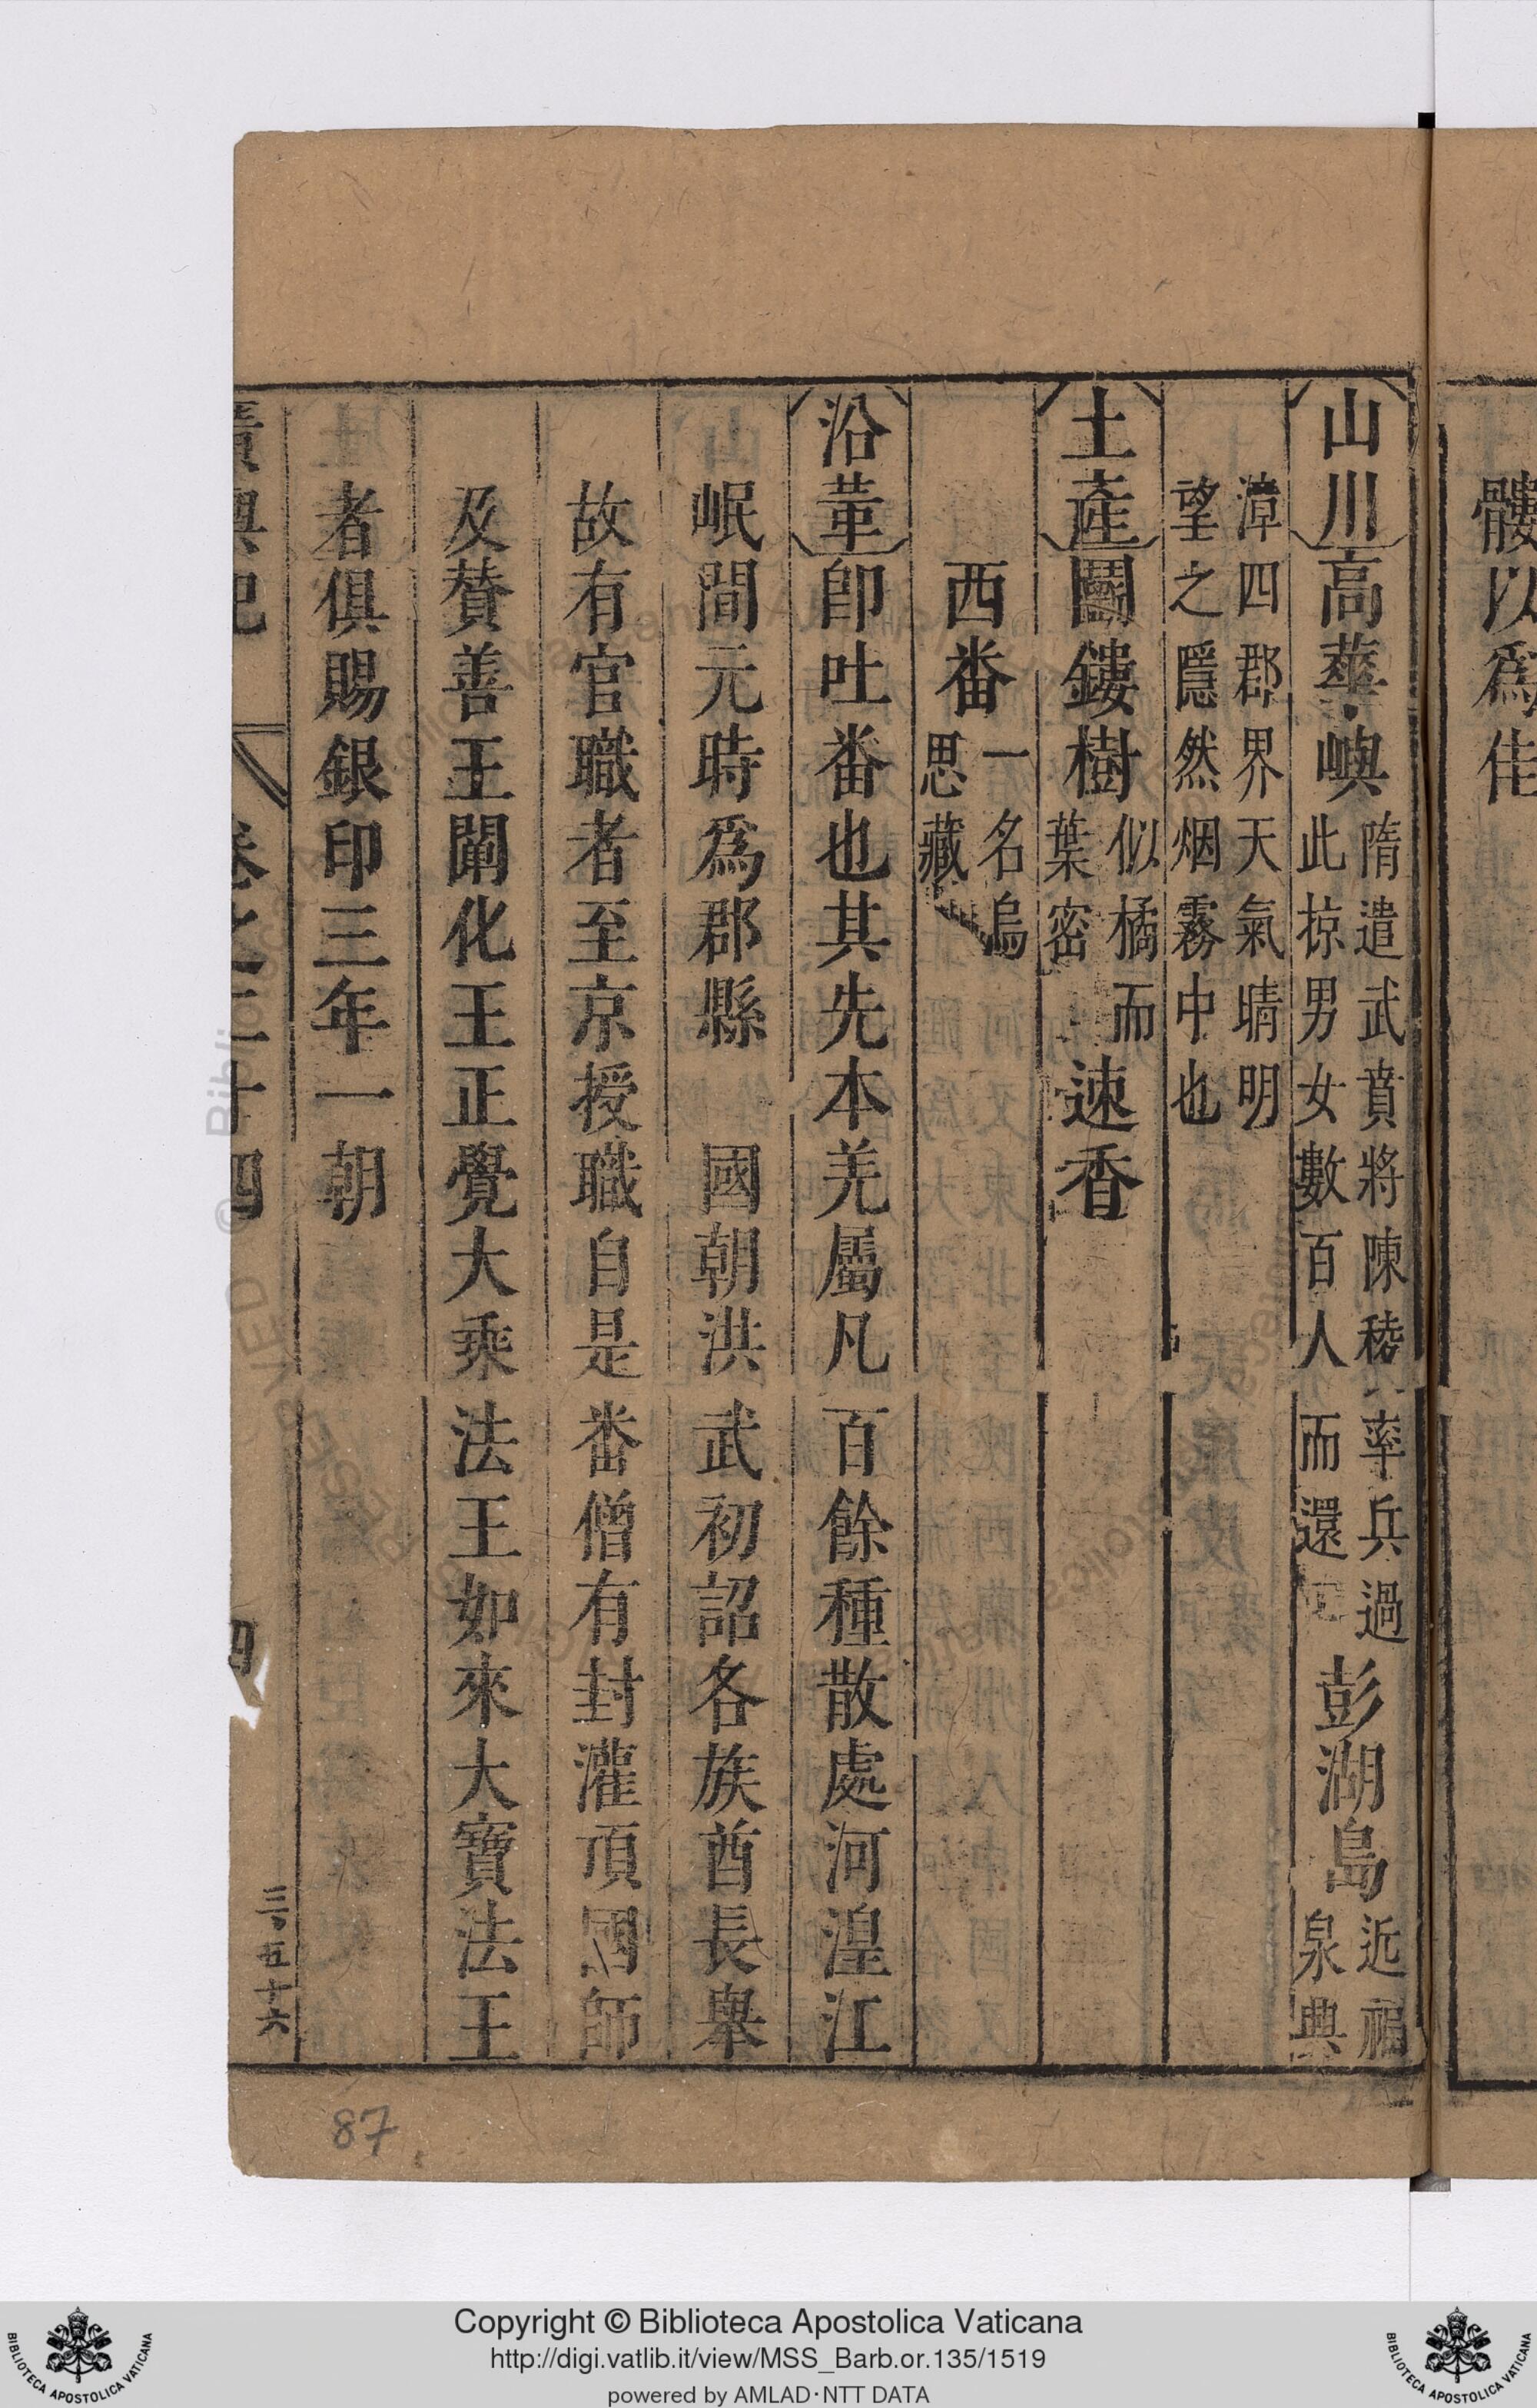 髏以爲佳
山川高華嶼隋遣武賁將陳稜率兵過此掠男女數百人而還彭湖島近福泉興
漳四郡界天氣晴明望之隱然烟霧中也
土產鬭鏤樹似橘而葉密速香
西畨一名烏思藏
沿革卽吐畨也其先本羌屬凡百餘種散處河湟江
岷間元時爲郡縣 國朝洪武初詔各族酋長舉
故有官職者至京授職自是畨僧有封灌頂國師
及賛善王闡化王正覺大乘法王如來大寶法王
者俱賜銀印三年一朝
廣輿記 卷之二十四 四
三百五十六
87
Copyright © Biblioteca Apostolica Vaticana
http://digi.vatlib.it/view/MSS_Barb.or.135/1519
powered by AMLAD·NTT DATA
BIBLIOTECA APOSTOLICA VATICANA
BIBLIOTECA APOSTOLICA VATICANA